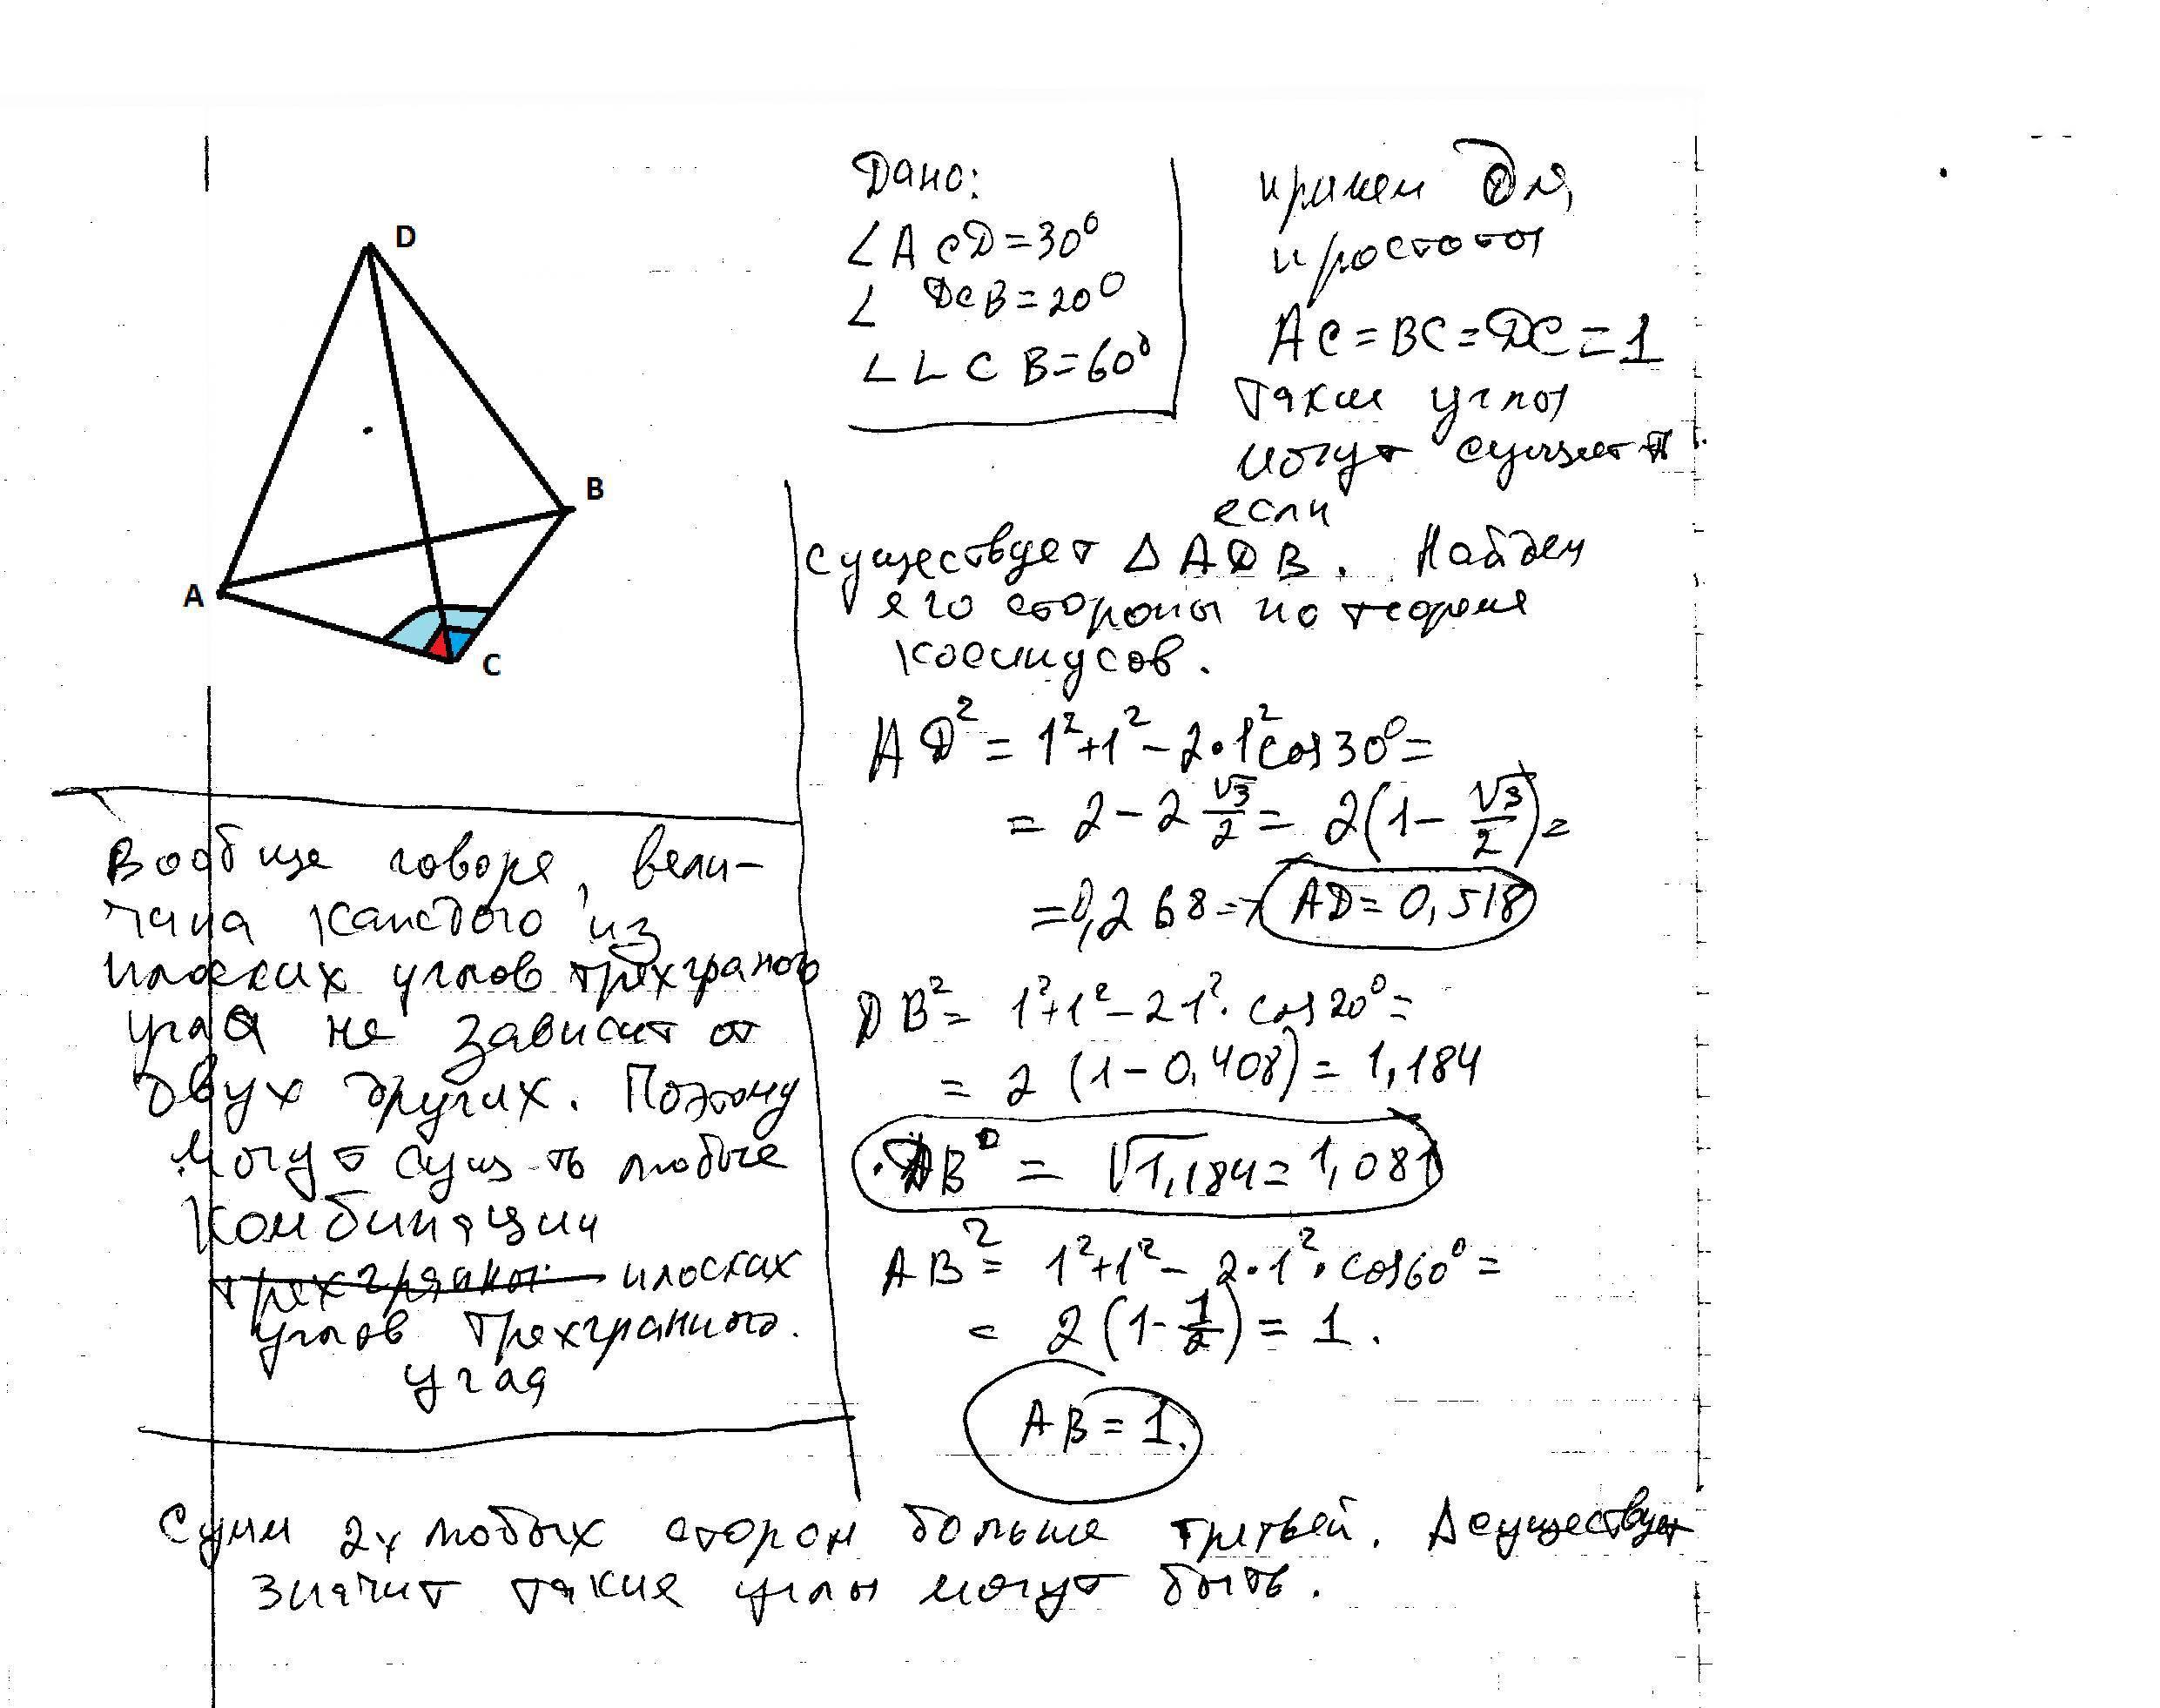 D
B
A
C
Дано:
∠ACD=30⁰
∠ DCB=20⁰
∠LCB=60⁰
примем для
простоты
AC=BC=DC=1
Такие углы
могут существ-ть
если
существует ΔADB. Найдем
его стороны по теореме
косинусов.
AD² = 1²+1²-2•1²cos30⁰=
= 2-2 √3/2 = 2(1-√3/2)=
=0,268 => AD=0,518
DB² = 1²+1²-2·1²·cos20⁰=
= 2 (1-0,408)=1,184
DB = √1,184=1,081
AB² = 1²+1²-2•1²•cos60⁰=
= 2(1-1/2)=1.
AB=1.
Вообще говоря, вели-
чина каждого из
плоских углов трехграного
угла не зависит от
двух других. Поэтому
могут сущ-ть любые
комбинации
трехграных плоских
углов трехгранного.
угла
Сумм 2х любых сторон больше третьей. Δ существует
значит такие углы могут быть.